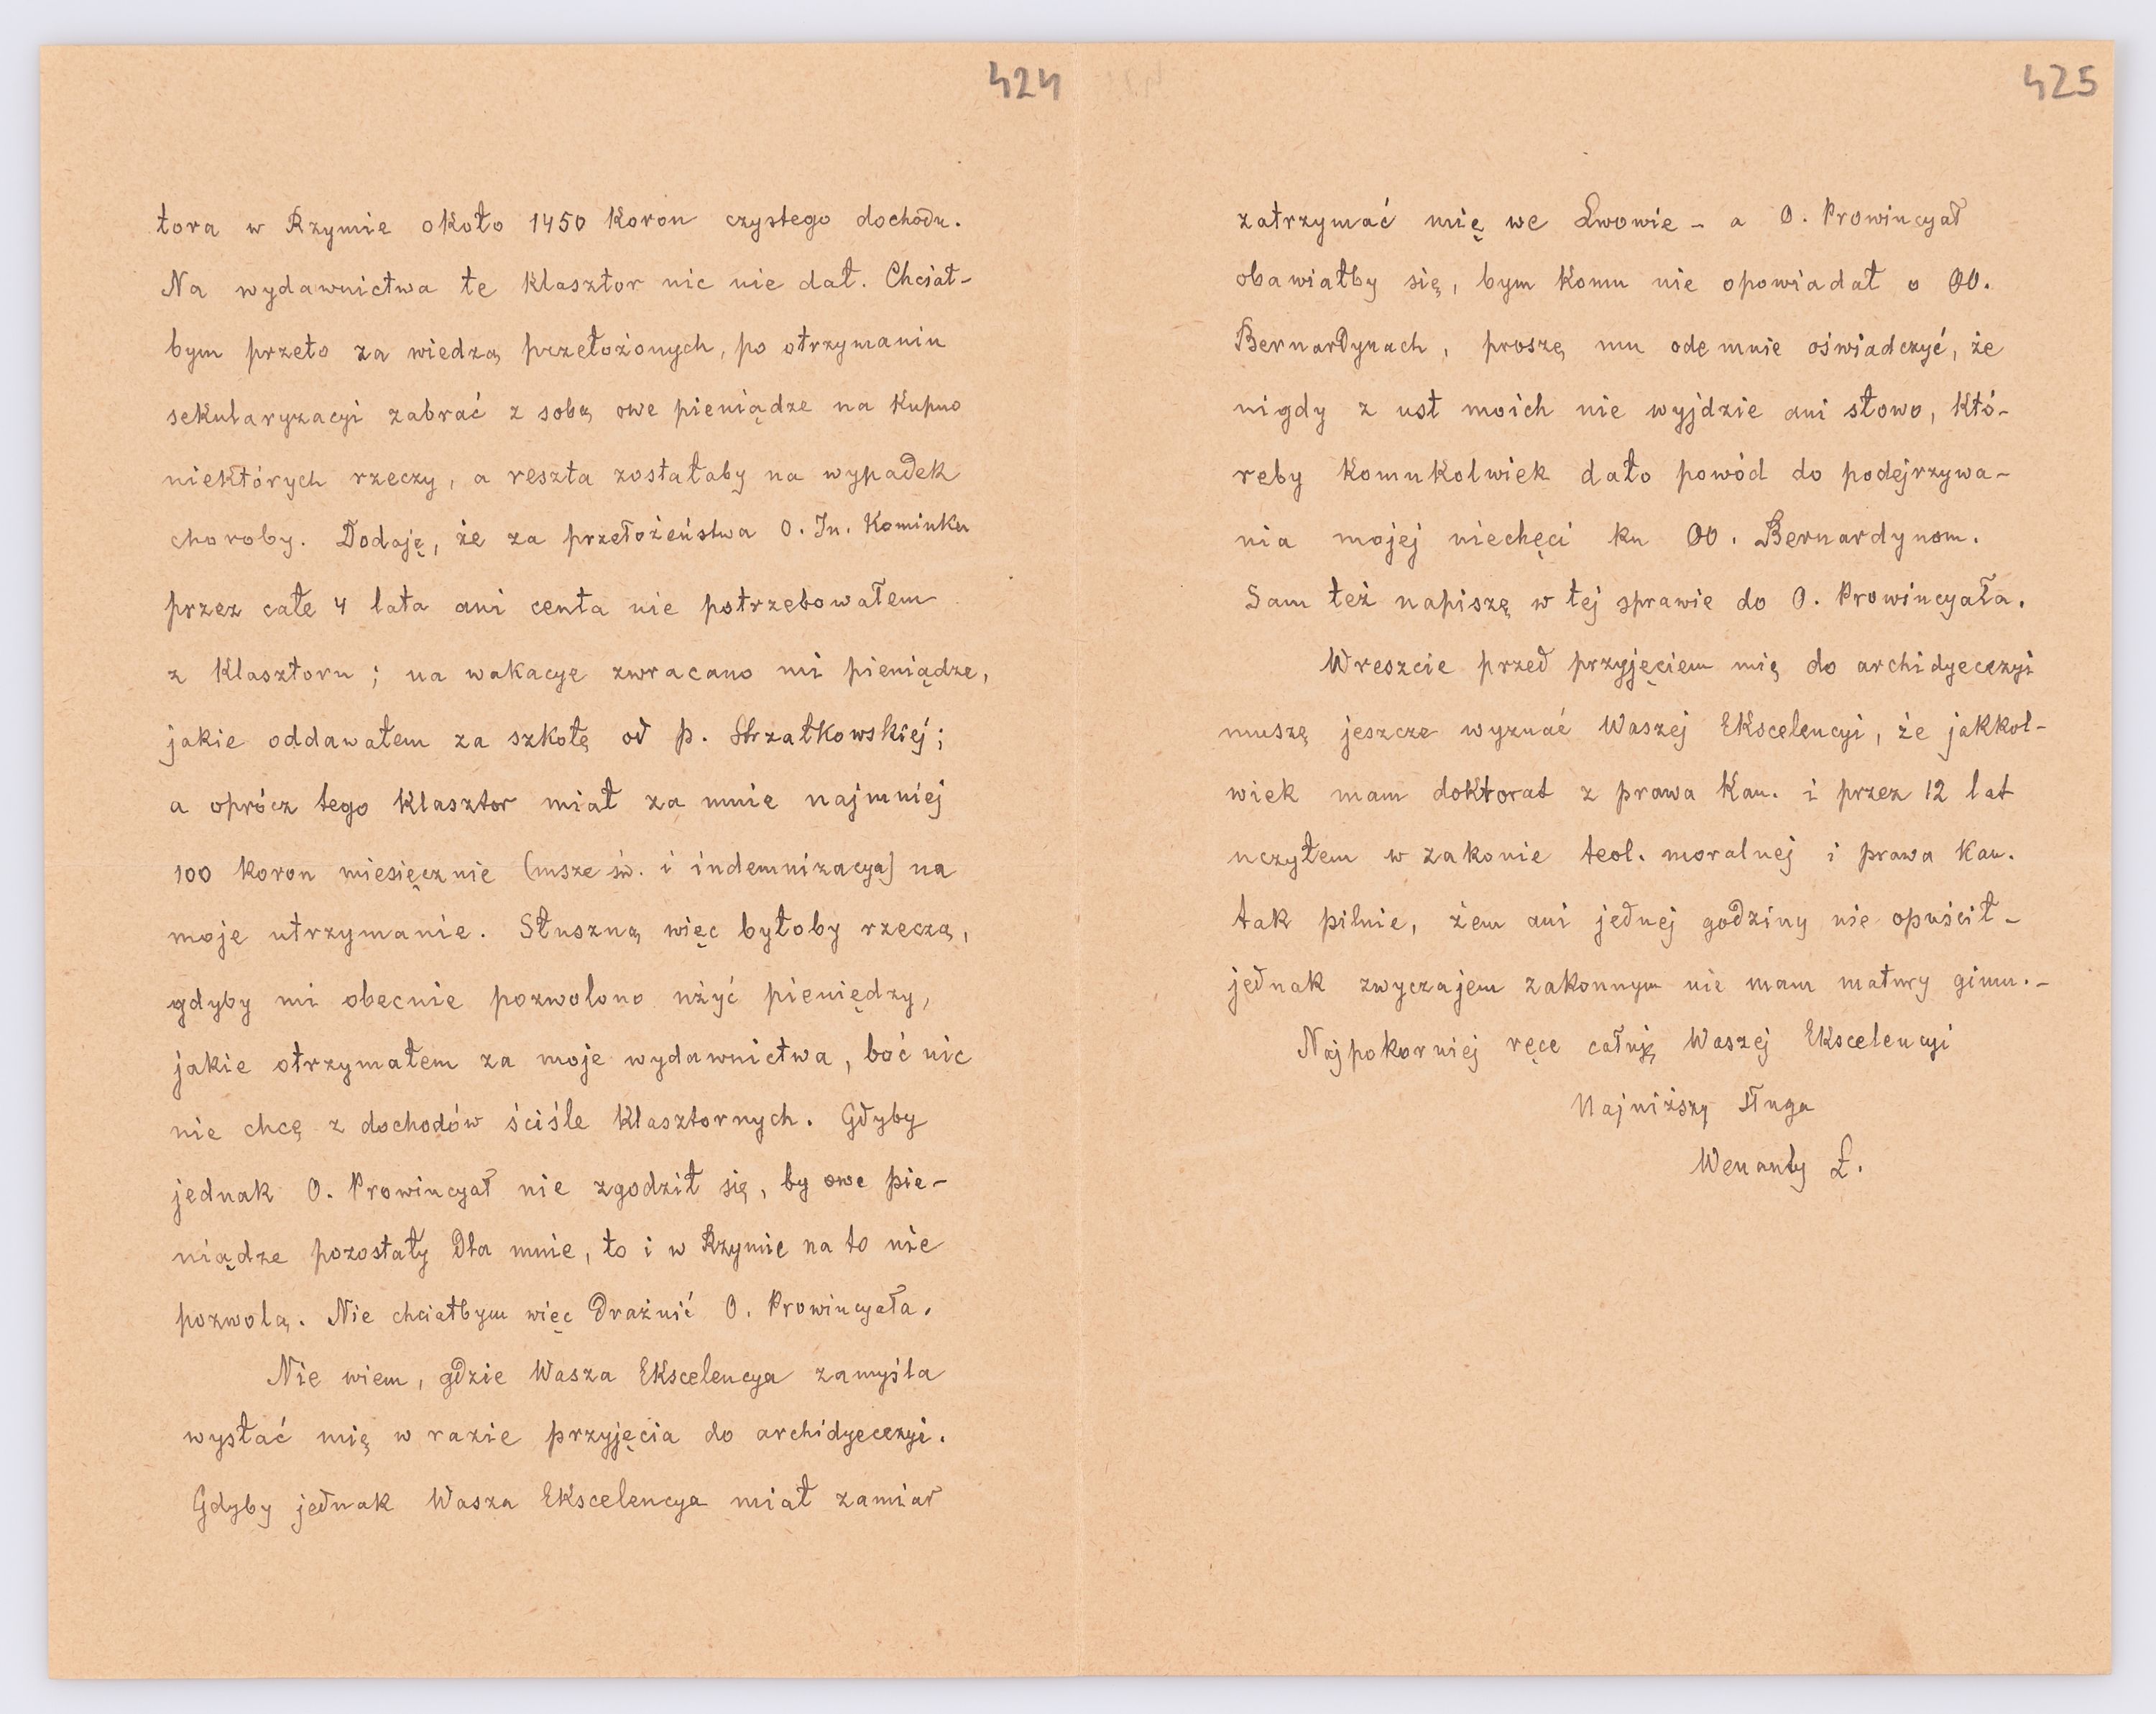 424
tora w Rzymie około 1450 koron czystego dochodu.
Na wydawnictwa te klasztor nic nie dał. Chciał-
bym przeto za wiedzą przełożonych, po otrzymaniu
sekularyzacyi zabrać z sobą owe pieniądze na kupno
niektórych rzeczy, a reszta zostałaby na wypadek
choroby. Dodaję, że za przełożeństwa O. In. Kominka
przez całe 4 lata ani centa nie potrzebowałem
z klasztoru; na wakacye zwracano mi pieniądze,
jakie oddawałem za szkołę od p. Strzałkowskiej;
a oprócz tego klasztor miał za mnie najmniej
100 koron miesięcznie (msze św. i indemnizacya) na
moje utrzymanie. Słuszną więc byłoby rzeczą,
gdyby mi obecnie pozwolono użyć pieniędzy,
jakie otrzymałem za moje wydawnictwa, boć nic
nie chcę z dochodów ściśle klasztornych. Gdyby
jednak O. Prowincyał nie zgodził się, by owe pie-
niądze pozostały dla mnie, to i w Rzymie na to nie
pozwolą. Nie chciałbym więc drażnić O. Prowincyała.
Nie wiem, gdzie Wasza Ekscelencya zamyśla
wysłać mię w razie przyjęcia do archidyecezyi.
Gdyby jednak Wasza Ekscelencya miał zamiar
425
zatrzymać mię we Lwowie – a O. Prowincyał
obawiałby się, bym komu nie opowiadał o OO.
Bernardynach, proszę mu odemnie oświadczyć, że
nigdy z ust moich nie wyjdzie ani słowo, któ-
reby komukolwiek dało powód do podejrzywa-
nia mojej niechęci ku OO. Bernardynom.
Sam też napiszę w tej sprawie do O. Prowincyała.
Wreszcie przed przyjęciem mię do archidyecezyi
muszę jeszcze wyznać Waszej Ekscelencyi, że jakkol-
wiek mam doktorat z prawa kan. i przez 12 lat
uczyłem w zakonie teol. moralnej i prawa kan.
tak pilnie, żem ani jednej godziny nie opuścił –
jednak zwyczajem zakonnym nie mam matury gimn. –
Najpokorniej ręce całuję Waszej Ekscelencyi
Najniższy sługa
Wenanty Ł.